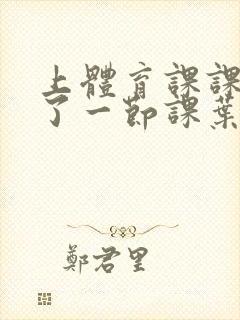 上體育課課
了一節課葉
鄭君里